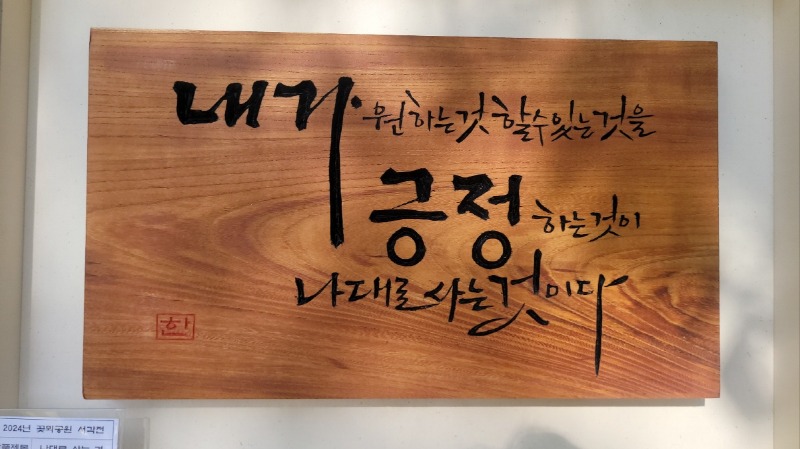 내가 원하는것 할수있는것을
긍정 하는것이
나대로 사는것이다
한
2024년 꽃뫼공원 서각전
작품제목 나대로 사는 것